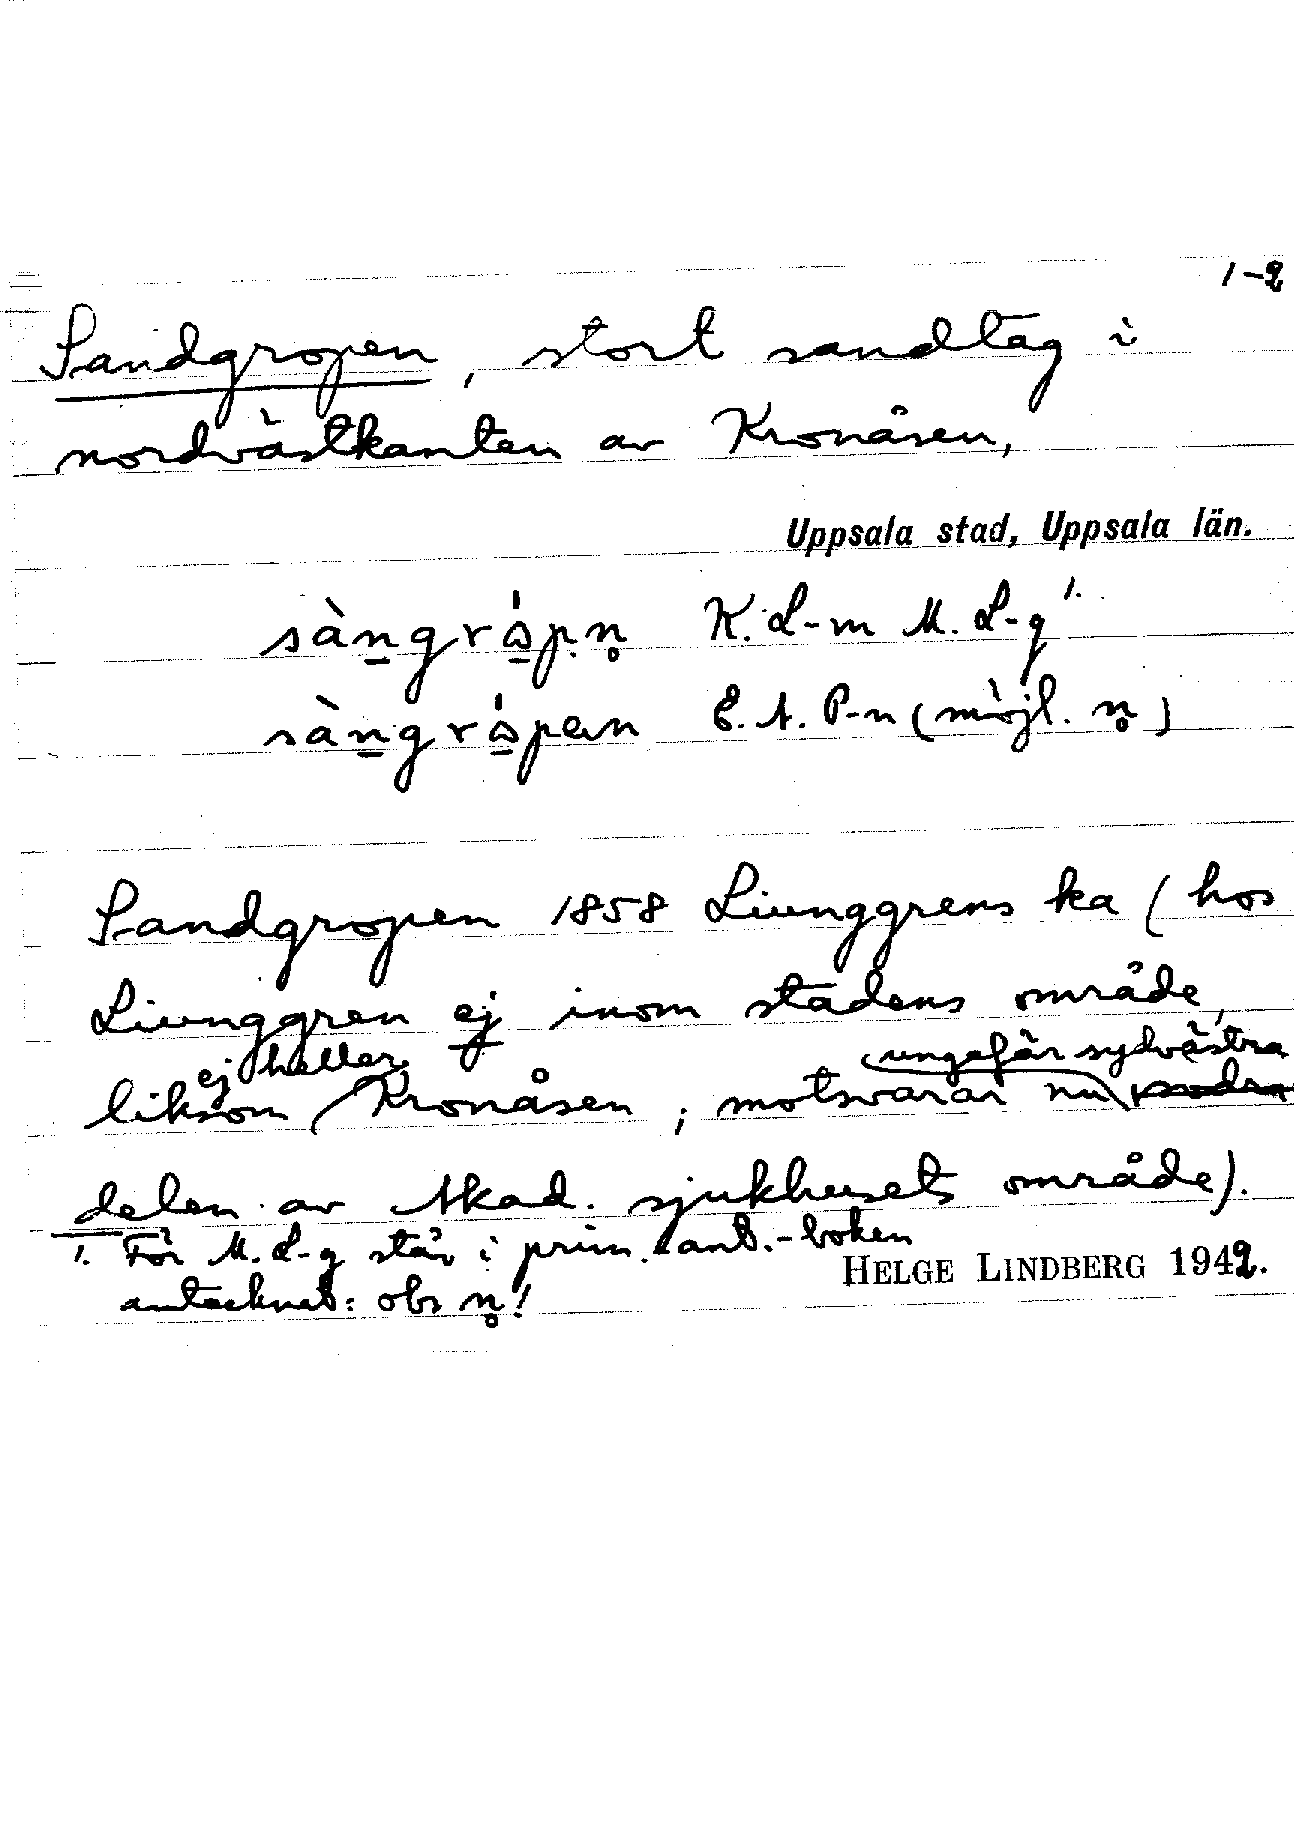 1-2
Sandgropen, stort sandtag i
nordvästkanten av Kronåsen,
Uppsala stad, Uppsala län.
sàngrópn̥ K. L-m M. L-g 1.
sàngrópən E. A. P-n (möjl. n̥)
Sandgropen 1858 Liunggrens ka (hos
Liunggren ej inom stadens område,
liksom ej heller Kronåsen; motsvarar nu ungefär sydvästra södra
delen av Akad. sjukhusets område).
1. För M. L-g står i prim. ant.-boken
antecknat: obs n̥!
HELGE LINDBERG 1942.